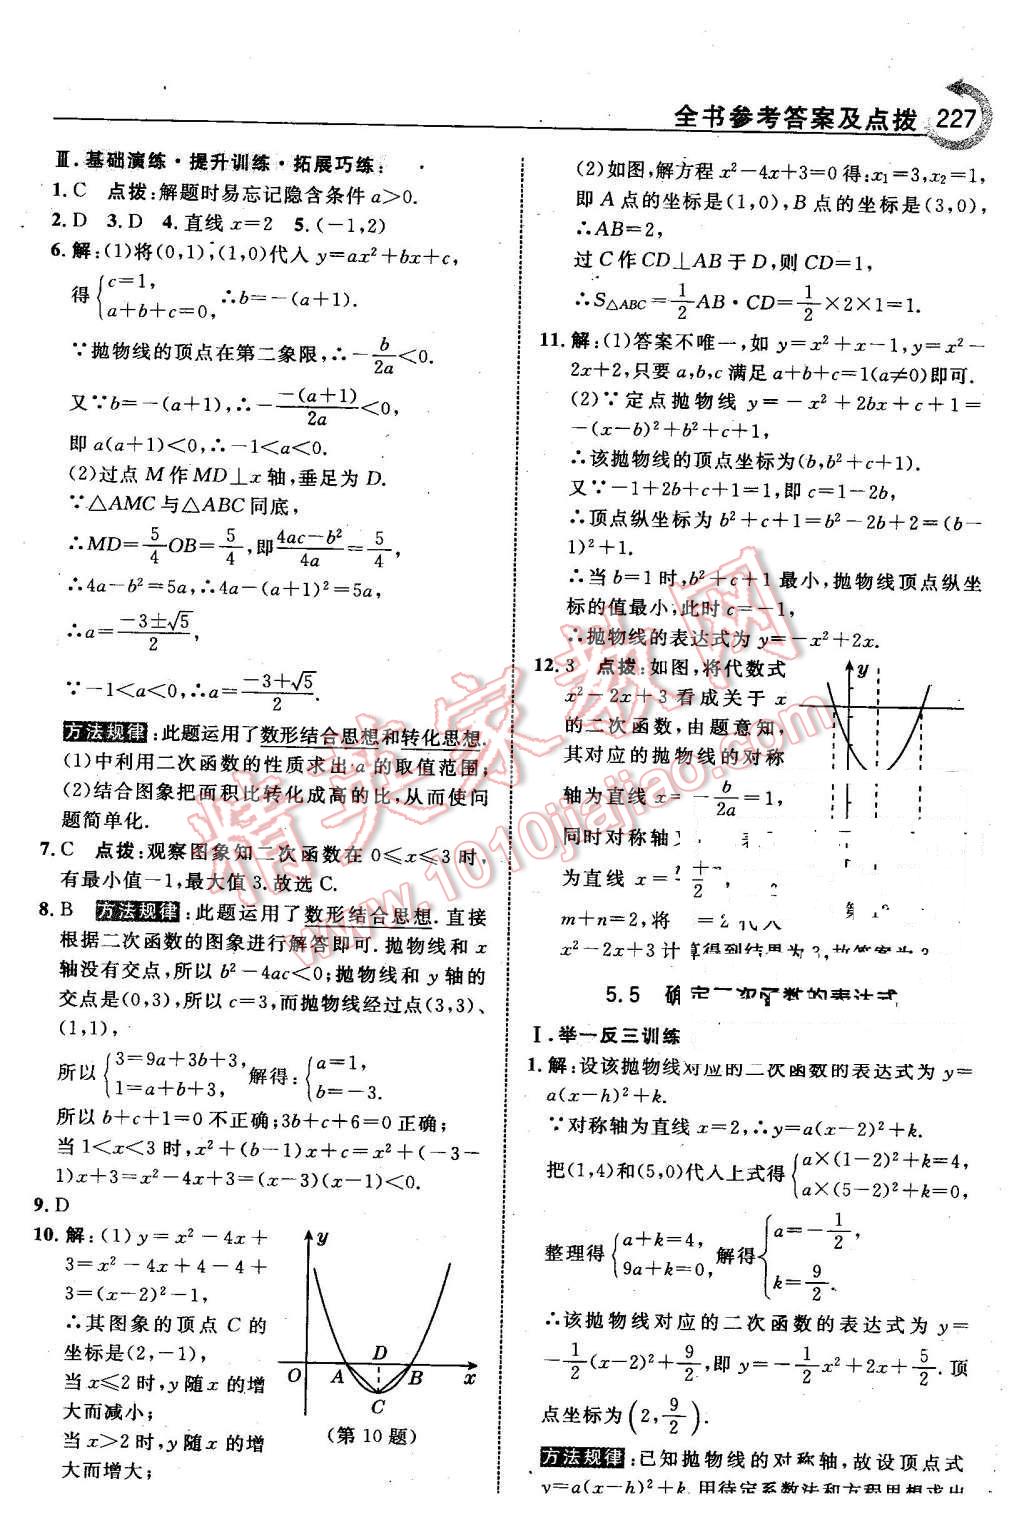 全书参考答案及点拨 227
Ⅲ.基础演练·提升训练·拓展巧练:
1.C 点拨:解题时易忘记隐含条件 a>0.
2.D 3.D 4.直线 x=2 5.(-1,2)
6.解:(1)将(0,1),(1,0)代入 y=ax²+bx+c,
得{c=1, a+b+c=0, ∴b=-(a+1).
∵抛物线的顶点在第二象限,∴-b/2a<0.
又∵b=-(a+1),∴-(-(a+1))/2a<0,
即 a(a+1)<0,∴-1<a<0.
(2)过点 M 作 MD⊥x 轴,垂足为 D.
∵△AMC 与△ABC 同底,
∴MD=5/4 OB=5/4,即(4ac-b²)/4a=5/4,
∴4a-b²=5a,∴4a-(a+1)²=5a,
∴a=(-3±√5)/2,
∵-1<a<0,∴a=(-3+√5)/2.
方法规律:此题运用了数形结合思想和转化思想.
(1)中利用二次函数的性质求出 a 的取值范围;
(2)结合图象把面积比转化成高的比,从而使问
题简单化.
7.C 点拨:观察图象知二次函数在 0⩽x⩽3 时,
有最小值-1,最大值 3.故选 C.
8.B 方法规律:此题运用了数形结合思想.直接
根据二次函数的图象进行解答即可.抛物线和 x
轴没有交点,所以 b²-4ac<0;抛物线和 y 轴的
交点是(0,3),所以 c=3,而抛物线经过点(3,3)、
(1,1),
所以{3=9a+3b+3, 1=a+b+3, 解得:{a=1, b=-3.
所以 b+c+1=0 不正确;3b+c+6=0 正确;
当 1<x<3 时,x²+(b-1)x+c=x²+(-3-
1)x+3=x²-4x+3=(x-3)(x-1)<0.
9.D
10.解:(1)y=x²-4x+
3=x²-4x+4-4+
3=(x-2)²-1,
∴其图象的顶点 C 的
坐标是(2,-1),
当 x⩽2 时,y 随 x 的增
大而减小;
当 x>2 时,y 随 x 的增
大而增大;
y
D
O A B x
C
(第 10 题)
(2)如图,解方程 x²-4x+3=0 得:x₁=3,x₂=1,
即 A 点的坐标是(1,0),B 点的坐标是(3,0),
∴AB=2,
过 C 作 CD⊥AB 于 D,则 CD=1,
∴S△ABC=1/2 AB·CD=1/2×2×1=1.
11.解:(1)答案不唯一,如 y=x²+x-1,y=x²-
2x+2,只要 a,b,c 满足 a+b+c=1(a≠0)即可.
(2)∵定点抛物线 y=-x²+2bx+c+1=
-(x-b)²+b²+c+1,
∴该抛物线的顶点坐标为(b,b²+c+1).
又∵-1+2b+c+1=1,即 c=1-2b,
∴顶点纵坐标为 b²+c+1=b²-2b+2=(b-
1)²+1.
∴当 b=1 时,b²+c+1 最小,抛物线顶点纵坐
标的值最小,此时 c=-1,
∴抛物线的表达式为 y=-x²+2x.
12.3 点拨:如图,将代数式
x²-2x+3 看成关于 x
的二次函数,由题意知,
其对应的抛物线的对称
轴为直线 x=-b/2a=1,
同时对称轴
为直线 x=
m+n=2,将 =2
x²-2x+3 计算得到结果为 3,故答案为
y
5.5 确定二次函数的表达式
Ⅰ.举一反三训练
1.解:设该抛物线对应的二次函数的表达式为 y=
a(x-h)²+k.
∵对称轴为直线 x=2,∴y=a(x-2)²+k.
把(1,4)和(5,0)代入上式得{a×(1-2)²+k=4, a×(5-2)²+k=0,
整理得{a+k=4, 9a+k=0, 解得{a=-1/2, k=9/2.
∴该抛物线对应的二次函数的表达式为 y=
-1/2(x-2)²+9/2,即 y=-1/2x²+2x+5/2.顶
点坐标为(2,9/2).
方法规律:已知抛物线的对称轴,故设顶点式
y=a(x-h)²+k,用待定系数法和方程思想求出
精英家教网
www.1010jiajiao.com